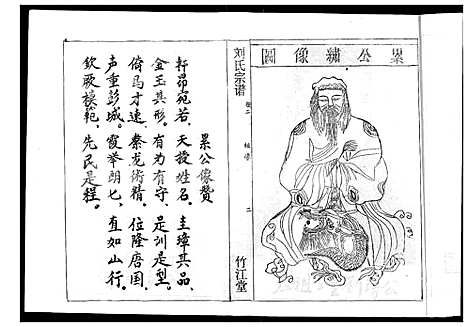 圖像繡公累
刘氏宗谱
卷二
二
竹江堂
累公像赞
轩昂宛若。天授姓名。圭璋其品。
金玉其形。有为有守。是训是型。
倚马才速。豢龙術精。位隆唐国。
声重彭城。霞举朗七。直如山行。
钦厥模範。先民是程。